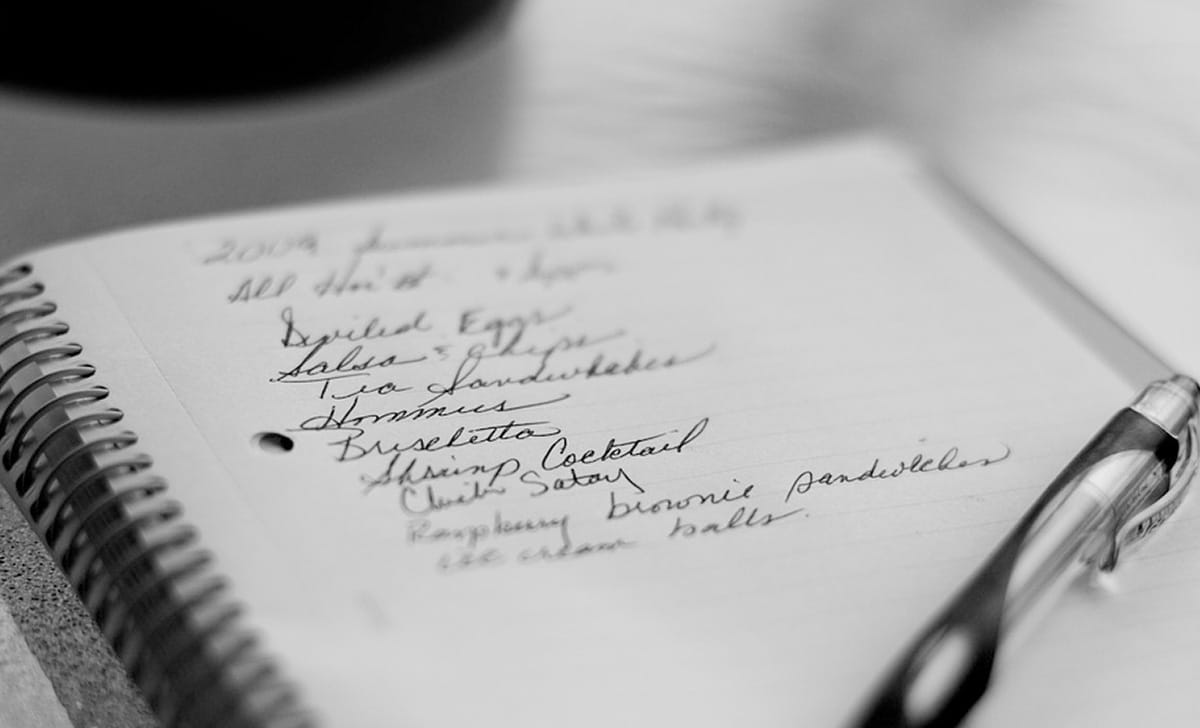 2009 Summer White Party
All
Deviled Eggs
Salsa & Chips
Tea Sandwhches
Hommus
Bruschetta
Shrimp Cocktail
Satay
Raspberry brownie sandwiches
ice cream balls.